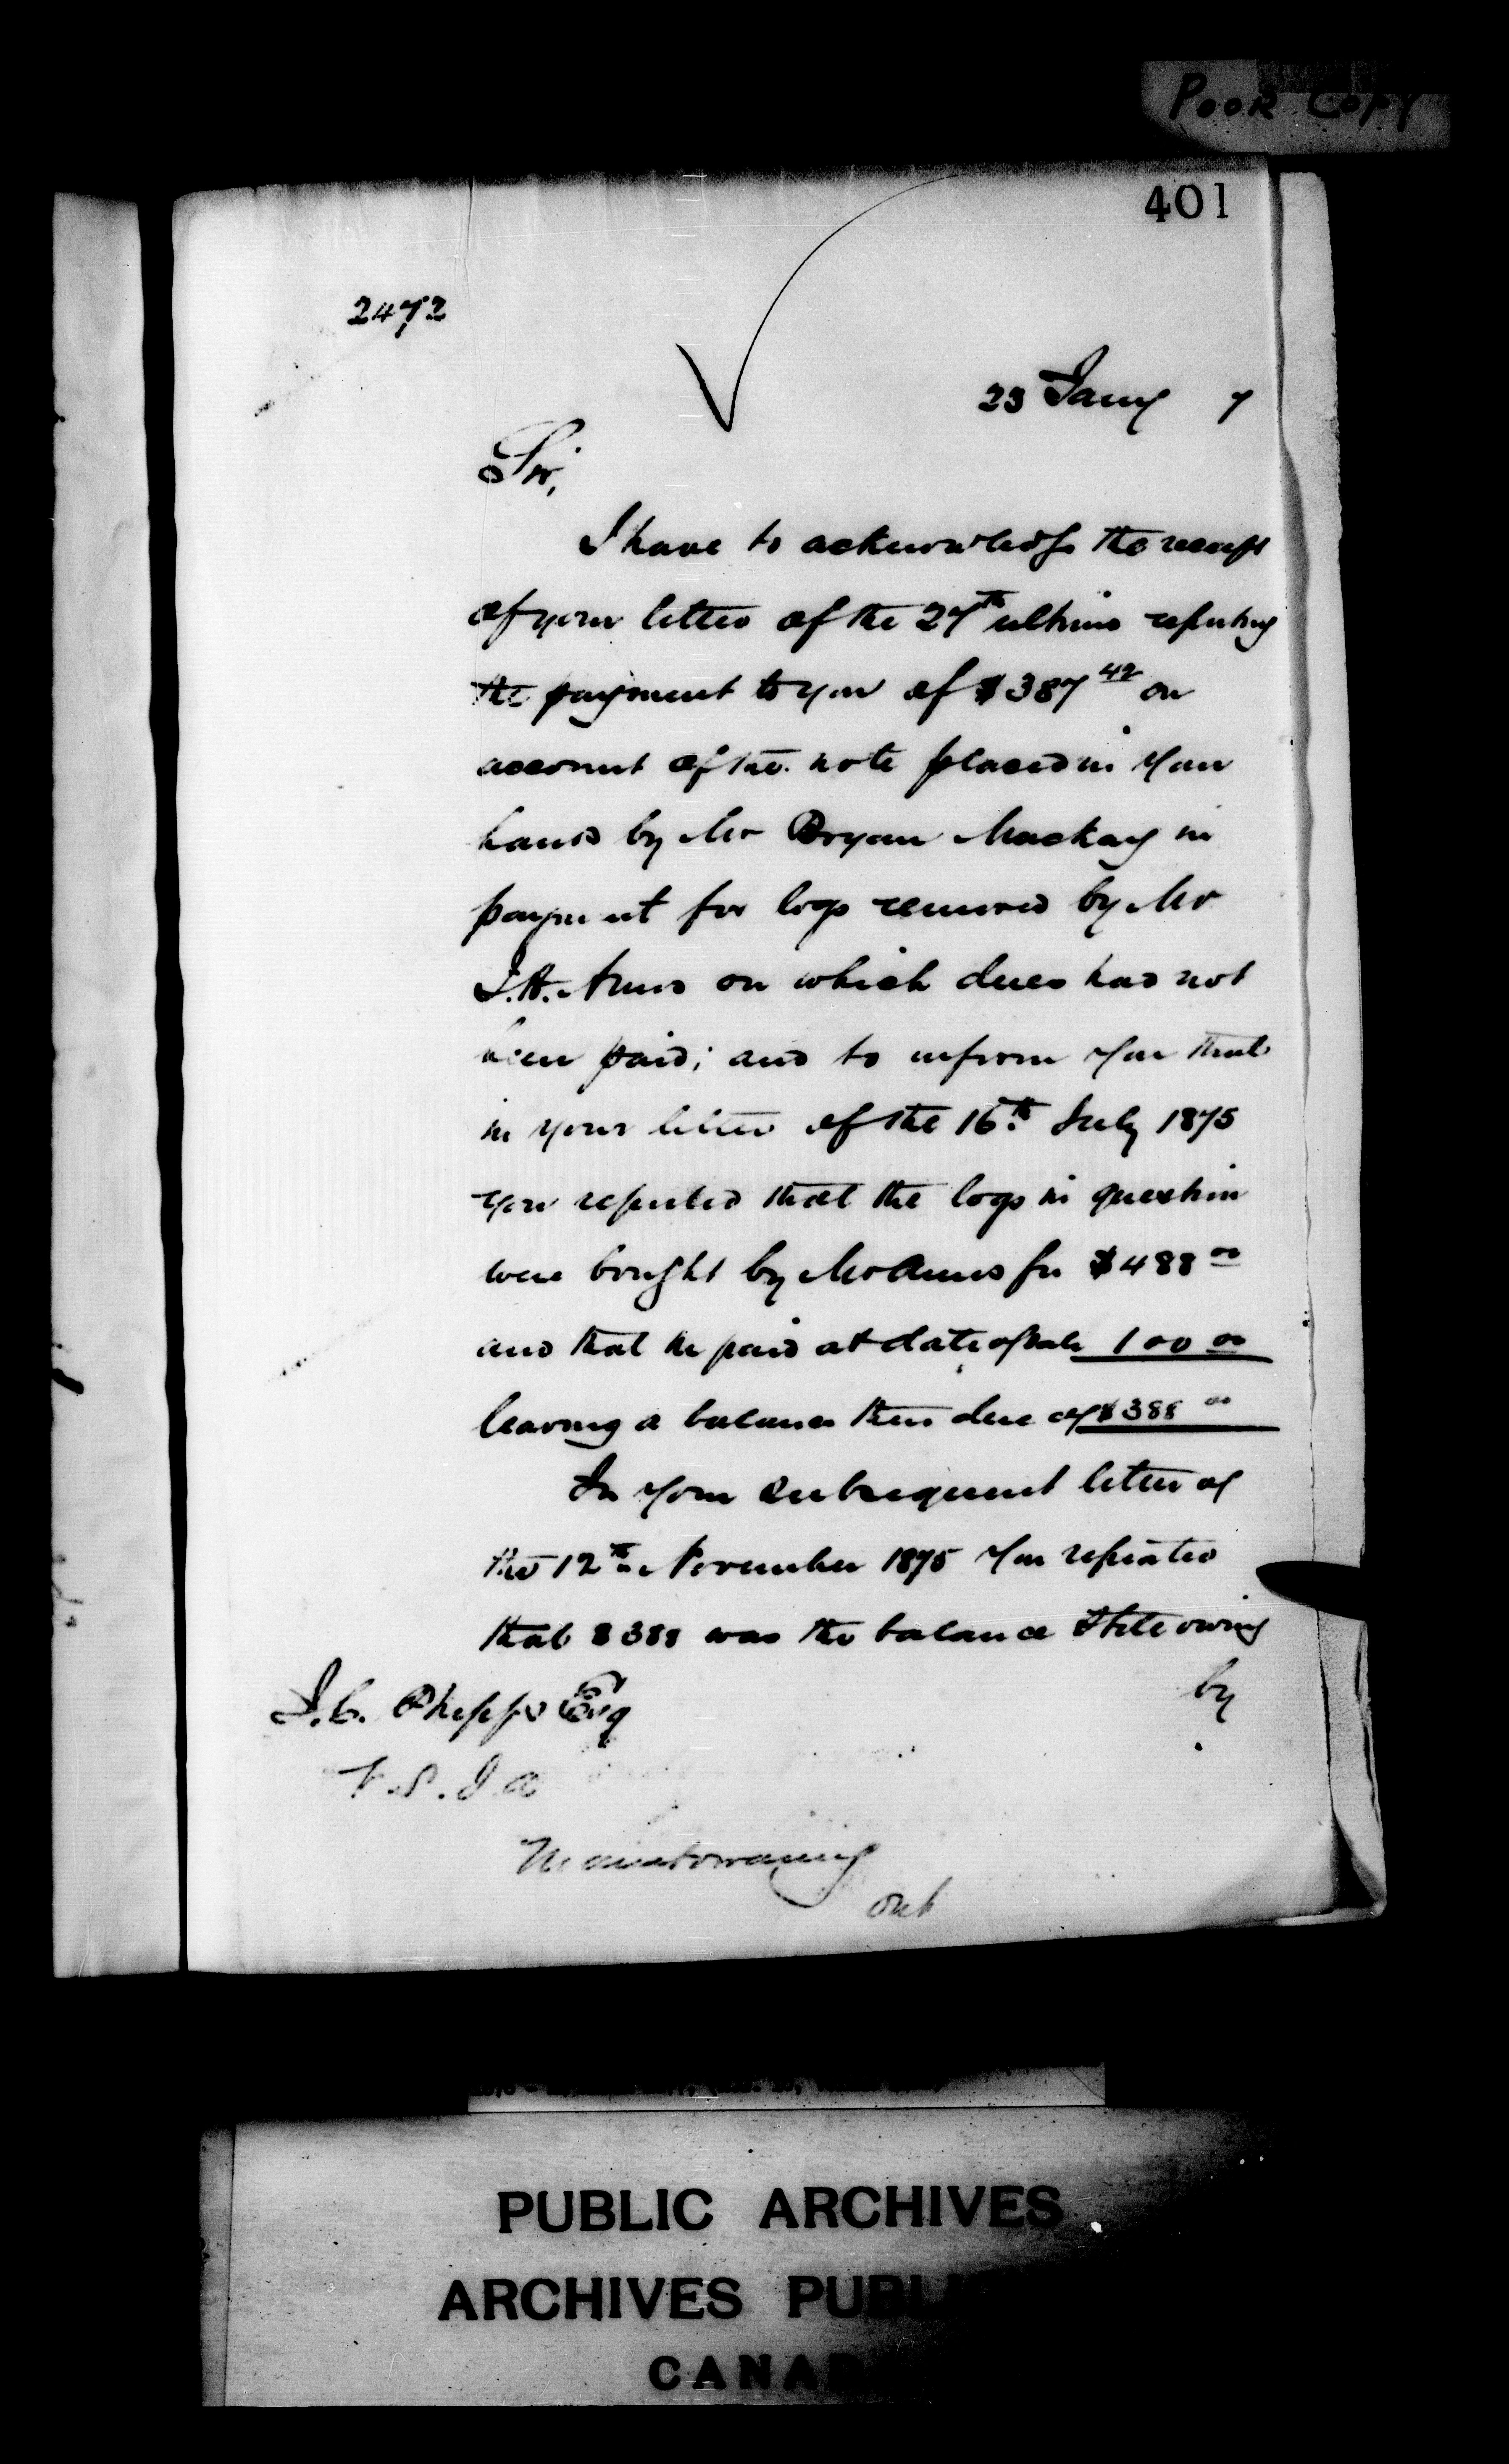 POOR COPY
401
2472
23 Jany 7
Sir,
I have to acknowledge the receipt
of your letter of the 27th ultimo reporting
the payment to you of $387 42 on
account of the note placed in your
hands by Mr Bryan Mackay in
payment for logs removed by Mr
on which dues had not
been paid; and to inform you that
in your letter of the 16th July 1875
you reported that the logs in question
were bought by Mr for $488 00
and that he paid at date of sale 100 00
leaving a balance then due of $388 00
In your subsequent letter of
the 12th November 1875 you repeated
that $388 was the balance still owing
by
J.C. Phipps Esq
V.S.I.A
Manitowaning
Ont
PUBLIC ARCHIVES
ARCHIVES PUBL
CANAD